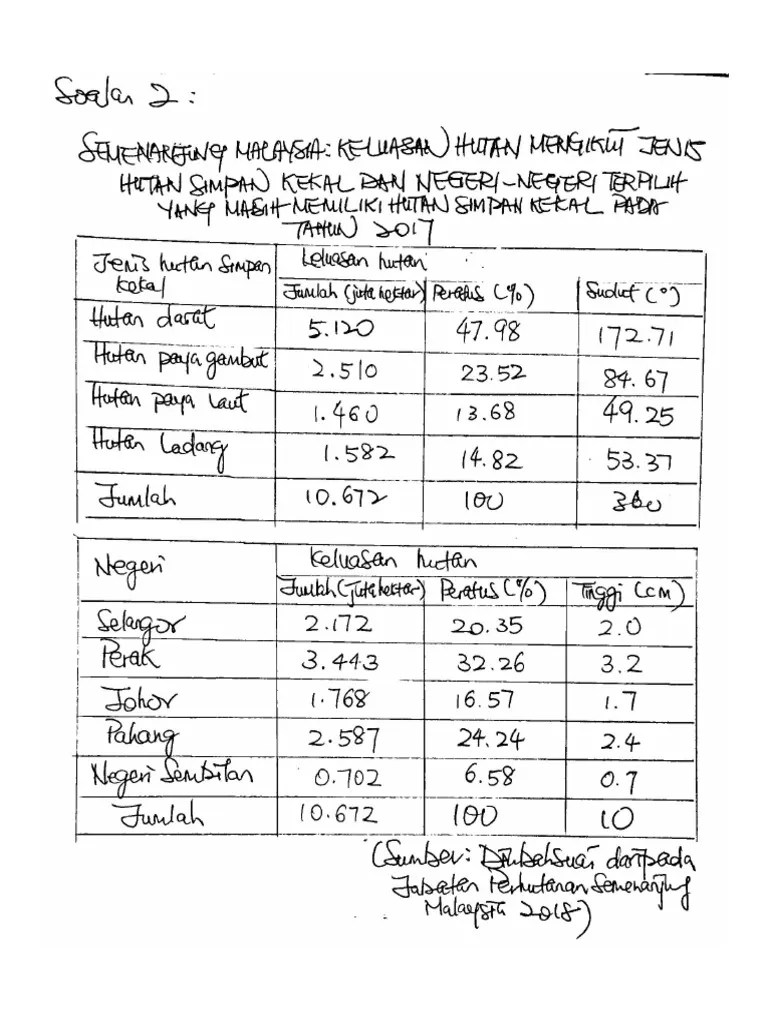 Soalan 2:
SEMENANJUNG MALAYSIA: KELUASAN HUTAN MENGIKUT JENIS
HUTAN SIMPAN KEKAL DAN NEGERI-NEGERI TERPILIH
YANG MASIH MEMILIKI HUTAN SIMPAN KEKAL PADA
TAHUN 2017
Jenis hutan simpan kekal Keluasan hutan
Jumlah (juta hektar) Peratus (%) Sudut (°)
Hutan darat 5.120 47.98 172.71
Hutan paya gambut 2.510 23.52 84.67
Hutan paya laut 1.460 13.68 49.25
Hutan Ladang 1.582 14.82 53.37
Jumlah 10.672 100 360
Negeri Keluasan hutan
Jumlah (juta hektar) Peratus (%) Tinggi (cm)
Selangor 2.172 20.35 2.0
Perak 3.443 32.26 3.2
Johor 1.768 16.57 1.7
Pahang 2.587 24.24 2.4
Negeri Sembilan 0.702 6.58 0.7
Jumlah 10.672 100 10
(Sumber: Diubahsuai daripada
Jabatan Perhutanan Semenanjung
Malaysia 2018)